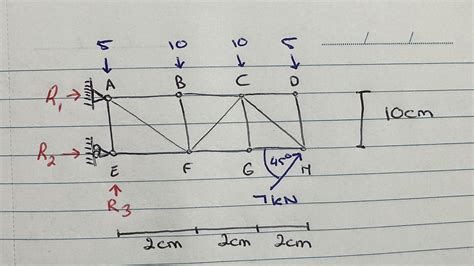 5 10 10 5
A B C D
R₁
10cm
R₂
E F G 45° H
R₃ 7kN
2cm 2cm 2cm